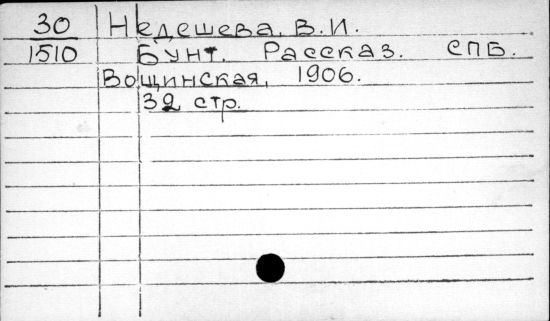 30 Недешева, В.И.
1510 Бунт. Рассказ. СПБ.
Вощинская, 1906.
32 стр.